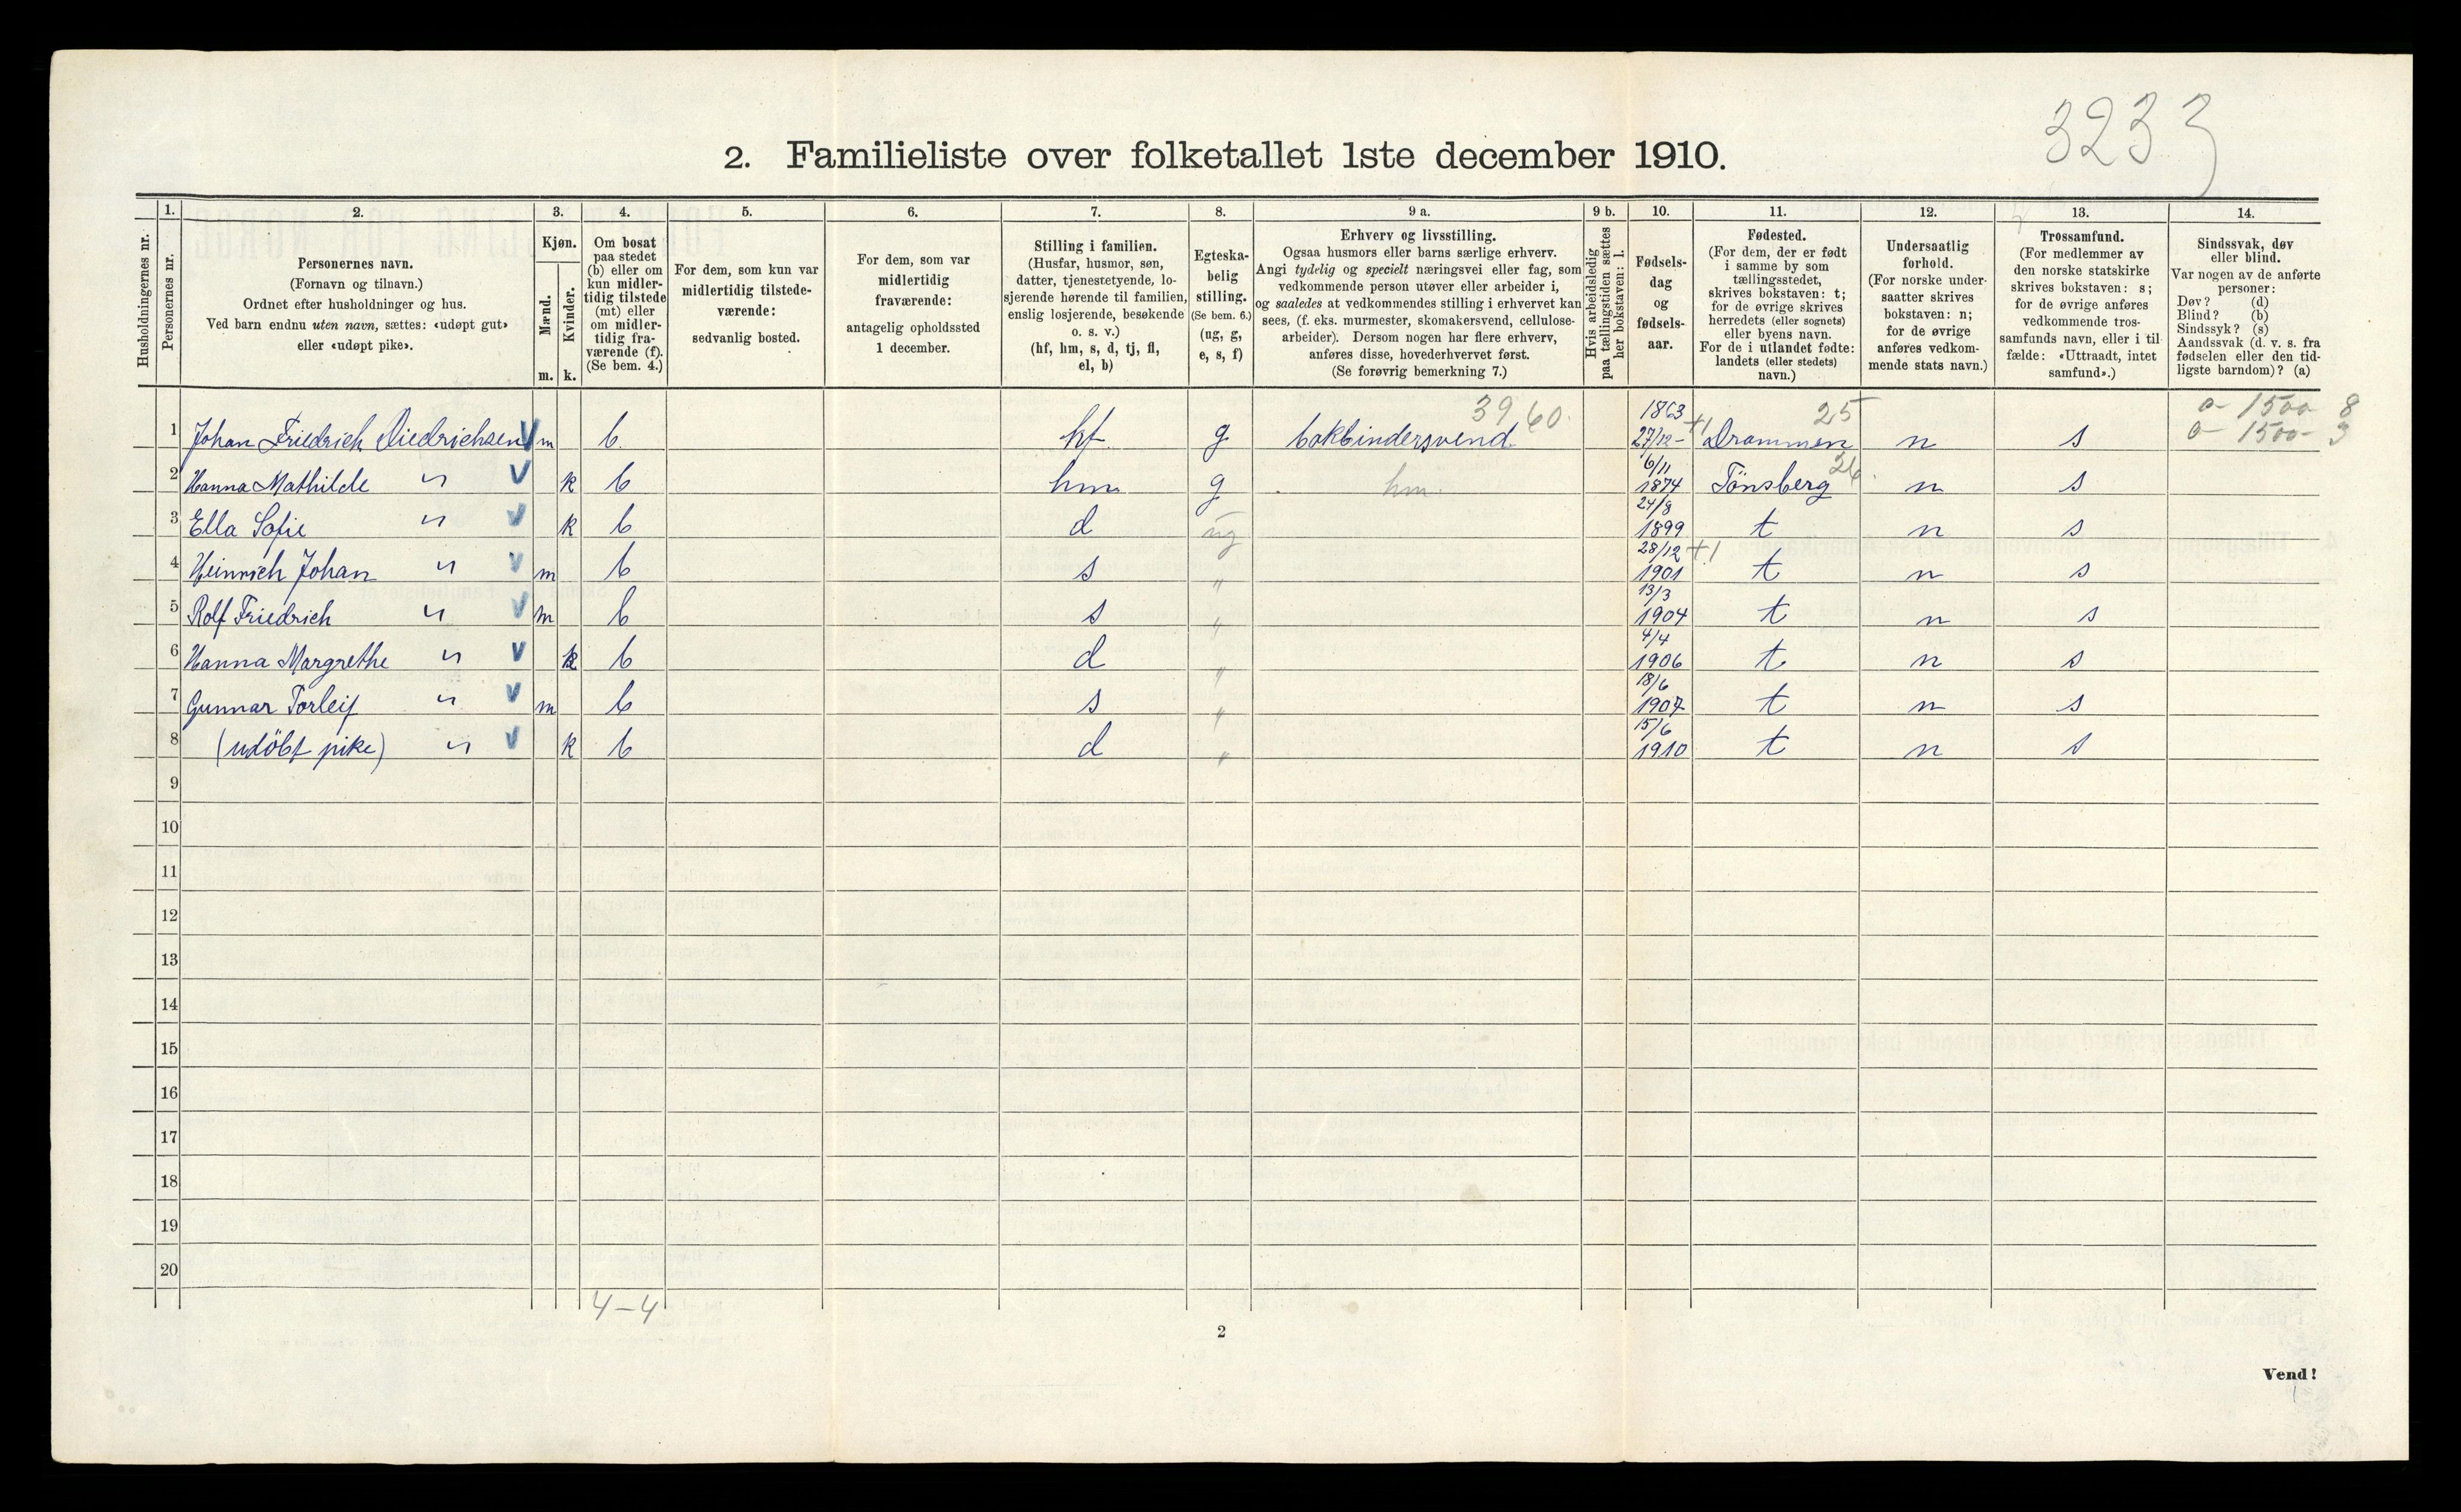 3233
2. Familieliste over folketallet 1ste december 1910.
Husholdningernes nr.
1. Personernes nr.
2. Personernes navn. (Fornavn og tilnavn.) Ordnet efter husholdninger og hus. Ved barn endnu uten navn, sættes: «udøpt gut» eller «udøpt pike».
3. Kjøn. Mænd. m. Kvinder. k.
4. Om bosat paa stedet (b) eller om kun midlertidig tilstede (mt) eller om midlertidig fraværende (f). (Se bem. 4.)
5. For dem, som kun var midlertidig tilstedeværende: sedvanlig bosted.
6. For dem, som var midlertidig fraværende: antagelig opholdssted 1 december.
7. Stilling i familien. (Husfar, husmor, søn, datter, tjenestetyende, losjerende hørende til familien, enslig losjerende, besøkende o. s. v.) (hf, hm, s, d, tj, fl, el, b)
8. Egteskabelig stilling. (Se bem. 6.) (ug, g, e, s, f)
9 a. Erhverv og livsstilling. Ogsaa husmors eller barns særlige erhverv. Angi tydelig og specielt næringsvei eller fag, som vedkommende person utøver eller arbeider i, og saaledes at vedkommendes stilling i erhvervet kan sees, (f. eks. murmester, skomakersvend, cellulosearbeider). Dersom nogen har flere erhverv, anføres disse, hovederhvervet først. (Se forøvrig bemerkning 7.)
9 b. Hvis arbeidsledig paa tællingstiden sættes her bokstaven: l.
10. Fødselsdag og fødselsaar.
11. Fødested. (For dem, der er født i samme by som tællingsstedet, skrives bokstaven: t; for de øvrige skrives herredets (eller sognets) eller byens navn. For de i utlandet fødte: landets (eller stedets) navn.)
12. Undersaatlig forhold. (For norske undersaatter skrives bokstaven: n; for de øvrige anføres vedkommende stats navn.)
13. Trossamfund. (For medlemmer av den norske statskirke skrives bokstaven: s; for de øvrige anføres vedkommende trossamfunds navn, eller i tilfælde: «Uttraadt, intet samfund».)
14. Sindssvak, døv eller blind. Var nogen av de anførte personer: Døv? (d) Blind? (b) Sindssyk? (s) Aandssvak (d. v. s. fra fødselen eller den tidligste barndom)? (a)
39,60. 1863 25 0- 1500 8
1 Johan Friedrich Diedrichsen V m b. hf g bokbindersvend 27/12- +1 Drammen n s 0- 1500- 3
2 Hanna Mathilde " V k b hm g hm. 6/11 1874 Tönsberg 26. n s
3 Ella Sofie " V k b d ug 24/8 1899 t n s
4 Heinrich Johan " V m b s " 28/12 1901 +1 t n s
5 Rolf Friedrich " V m b s " 13/3 1904 t n s
6 Hanna Margrethe " V k b d " 4/4 1906 t n s
7 Gunnar Torleif " V m b s " 18/6 1907 t n s
8 (udöbt pike) " V k b d " 15/6 1910 t n s
9
10
11
12
13
14
15
16
17
18
19
20
4-4
2
Vend!